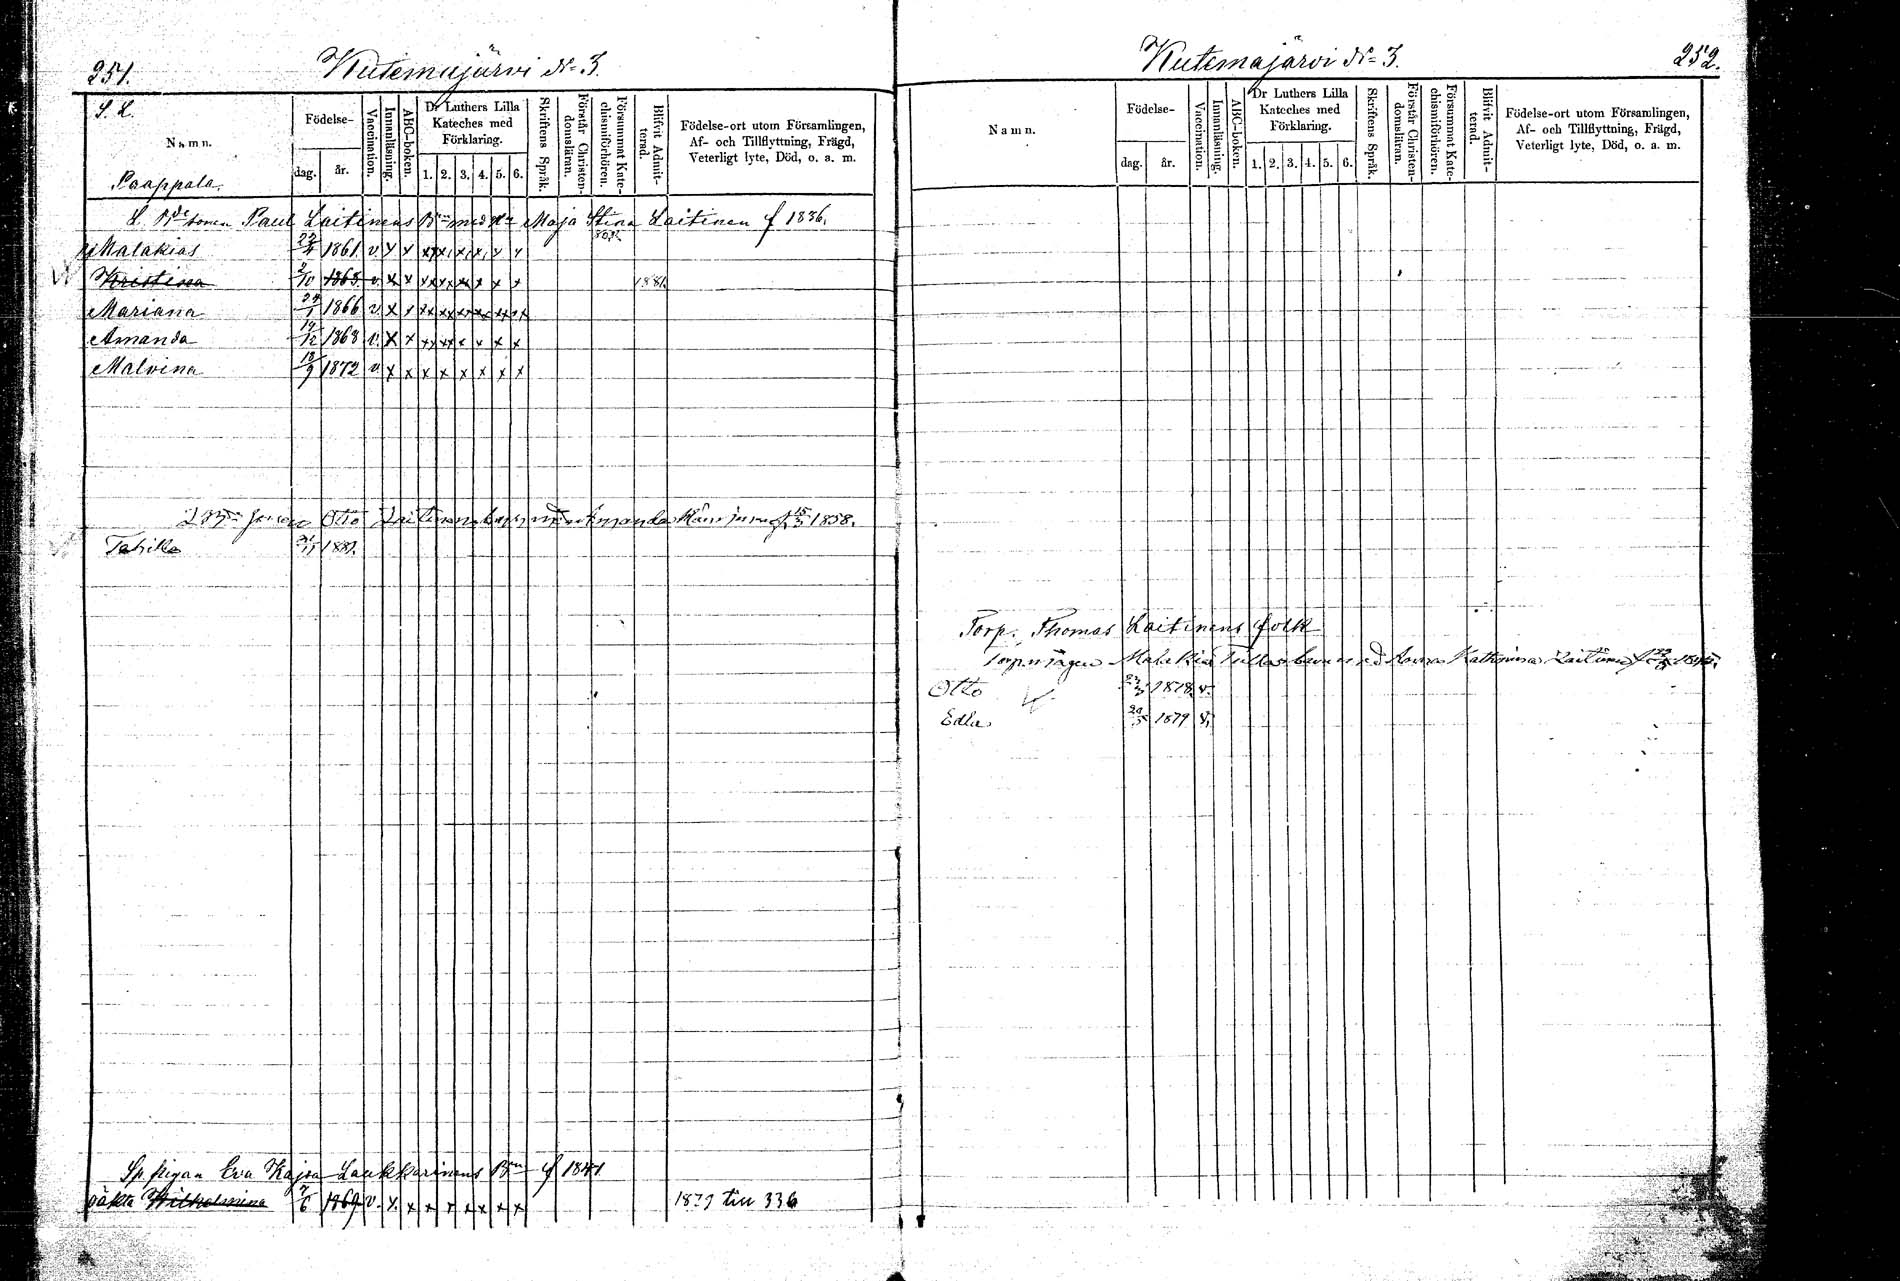 251. Kutemajärvi No 3.
S. L.
Namn.
Födelse-
dag. år.
Vaccination.
Innanläsning.
ABC-boken.
Dr Luthers Lilla Kateches med Förklaring.
1. 2. 3. 4. 5. 6.
Skriftens Språk.
Förstår Christen-domsläran.
Försummat Kate-chismiförhören.
Blifvit Admit-terad.
Födelse-ort utom Församlingen,
Af- och Tillflyttning, Frägd,
Veterligt lyte, Död, o. a. m.
Paappala.
L. Bde sonen Paul Laitinens Bn med Hu Maja Stina Laitinen f 1836.
Malakias 22/4 1861 v. x x xx xx x x x x
Kristina 2/10 1863 v. x x xx xx xx x x x 1881.
Mariana 24/1 1866 v. x x xx xx xx xx xx xx
Amanda 19/12 1868 v. x x xx xx x x x x
Malvina 18/9 1872 v x x x x x x x x
Otto Laitinens barn med Amanda f. 15/3 1858.
1881.
Sp. pigan Eva Kajsa Laukkarinens Bn f 1841
oäkta Wilhelmina 7/6 1869 v. x. x x x x x x x 1879 till 336
Kutemajärvi No 3. 252.
Namn.
Födelse-
dag. år.
Vaccination.
Innanläsning.
ABC-boken.
Dr Luthers Lilla Kateches med Förklaring.
1. 2. 3. 4. 5. 6.
Skriftens Språk.
Förstår Christen-domsläran.
Försummat Kate-chismiförhören.
Blifvit Admit-terad.
Födelse-ort utom Församlingen,
Af- och Tillflyttning, Frägd,
Veterligt lyte, Död, o. a. m.
Torp. Thomas Laitinens folk
Malakias barn med Anna Kathrina Laitinen
Otto 1878 v.
Edla 1879 v.